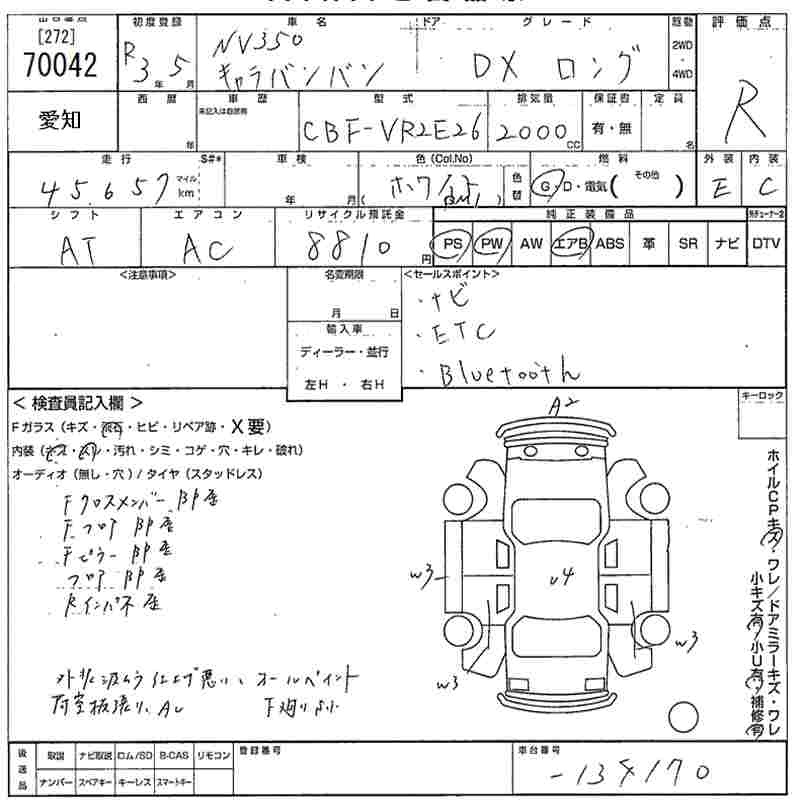 [272]
70042
初度登録
R 3年 5月
車名
NV350
キャラバンバン
ドア
グレード
DX ロング
駆動
2WD
・
4WD
評価点
R
愛知
西暦
年
車歴
未記入は自家用
型式
CBF-VR2E26
排気量
2000cc
保証書
有・無
定員
名
走行
45,657
マイル
km
S#*
車検
年 月
色(Col.No)
ホワイト
色替
燃料
G・D・電気( その他 )
外装
E
内装
C
シフト
AT
エアコン
AC
リサイクル預託金
8810円
純正装備品
PS PW AW エアB ABS 革 SR ナビ
DTV
<注意事項>
名変期限
月 日
輸入車
ディーラー・並行
左H ・ 右H
<セールスポイント>
・ナビ
・ETC
・Bluetooth
< 検査員記入欄 >
Fガラス (キズ・飛石・ヒビ・リペア跡・X要)
内装 (キズ・スレ・汚れ・シミ・コゲ・穴・キレ・破れ)
オーディオ (無し・穴) / タイヤ (スタッドレス)
Fクロスメンバー
Fフロア
Fピラー
フロア
Rインパネ
オールペイント
下廻り
キーロック
A2
W3
U4
W3
W3
ホイルCPキズ・ワレ/ドアミラーキズ・ワレ
小キズ有/小U有/補修有
後送品
取説 ナビ取説 ロム/SD B-CAS リモコン
ナンバー スペアキー キーレス スマートキー
登録番号
車台番号
-134170